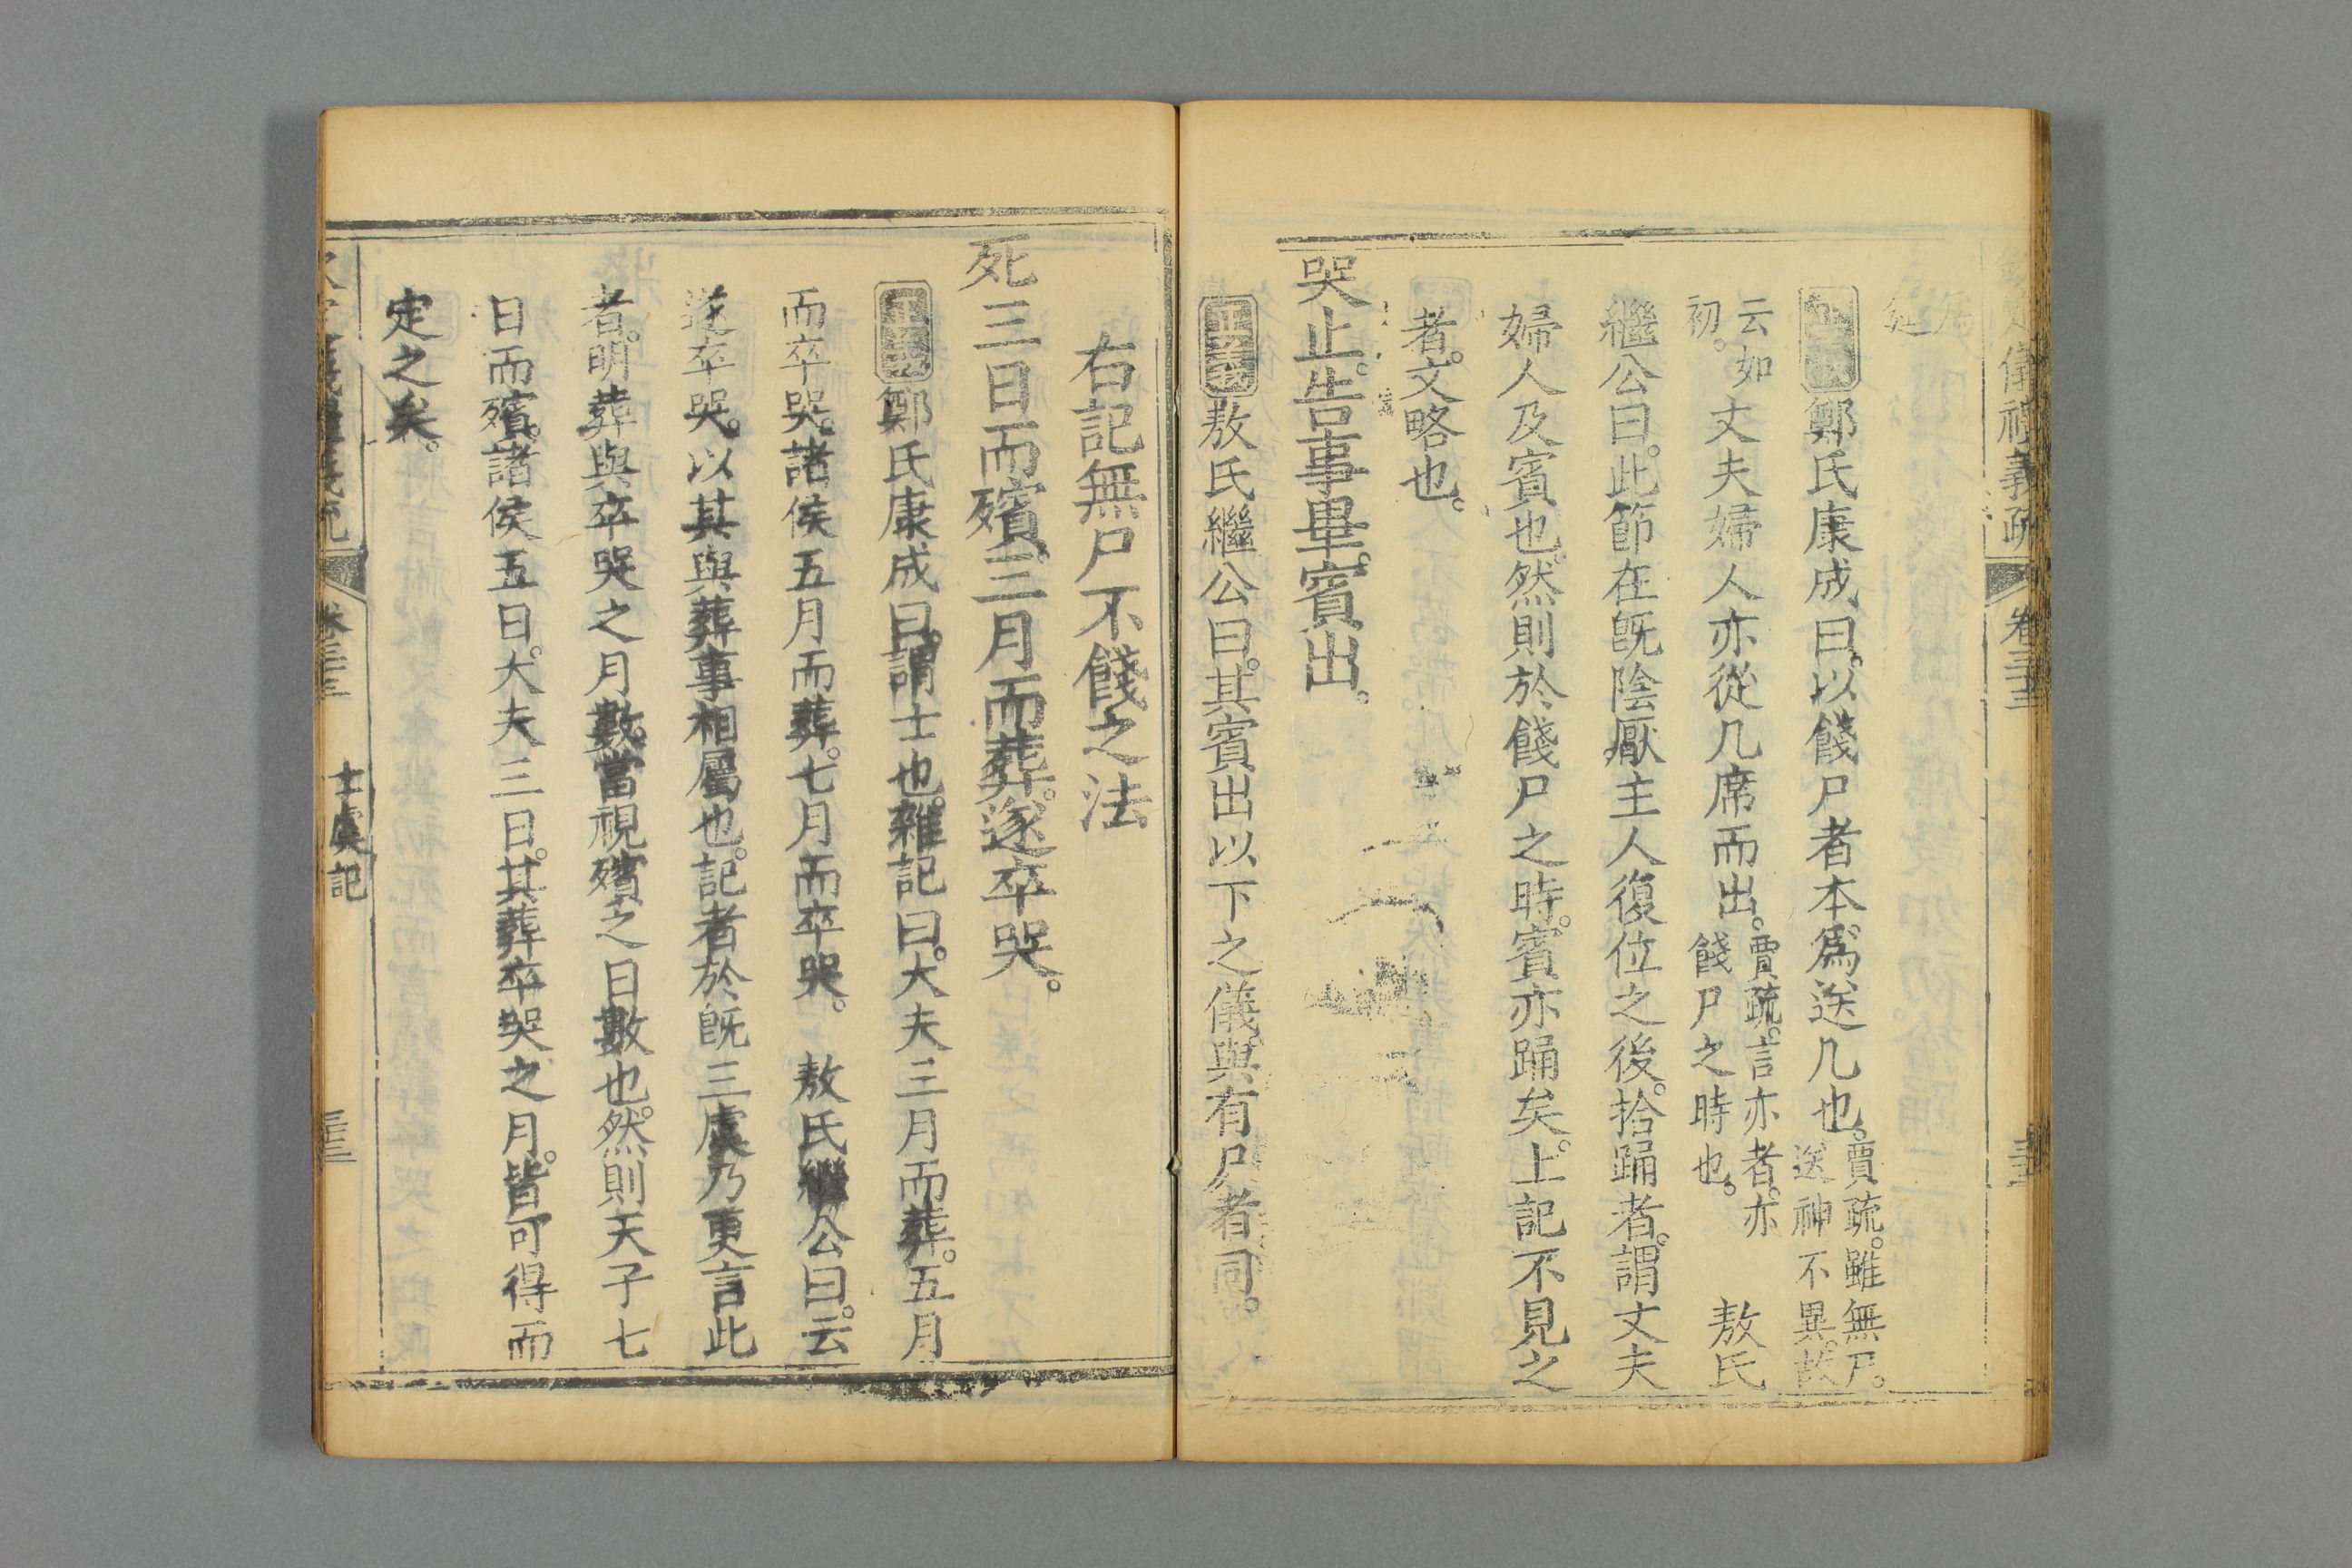 儀禮義疏 卷三十三
正義鄭氏康成曰。以餞尸者本爲送几也。賈疏。雖無尸。送神不異。故
云如初。丈夫婦人亦從几席而出。賈疏。言亦者。亦餞尸之時也。 敖氏
繼公曰。此節在既陰厭。主人復位之後。拾踊者。謂丈夫
婦人及賓也。然則於餞尸之時。賓亦踊矣。上記不見之
者。文略也。
哭止。告事畢。賓出。
正義敖氏繼公曰。其賓出以下之儀。與有尸者同。
右記無尸不餞之法
死三日而殯。三月而葬。遂卒哭。
正義鄭氏康成曰。謂士也。雜記曰。大夫三月而葬。五月
而卒哭。諸侯五月而葬。七月而卒哭。 敖氏繼公曰。云
遂卒哭。以其與葬事相屬也。記者於既三虞乃更言此
者。明葬與卒哭之月數。當視殯之日數也。然則天子七
日而殯。諸侯五日。大夫三日。其葬卒哭之月。皆可得而
定之矣。
卷三十三 士虞記